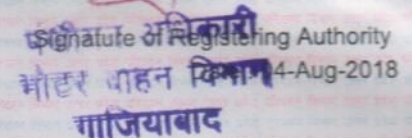 Signature of Registering Authority
अधिकारी
मोटर वाहन विभाग 4-Aug-2018
गाजियाबाद